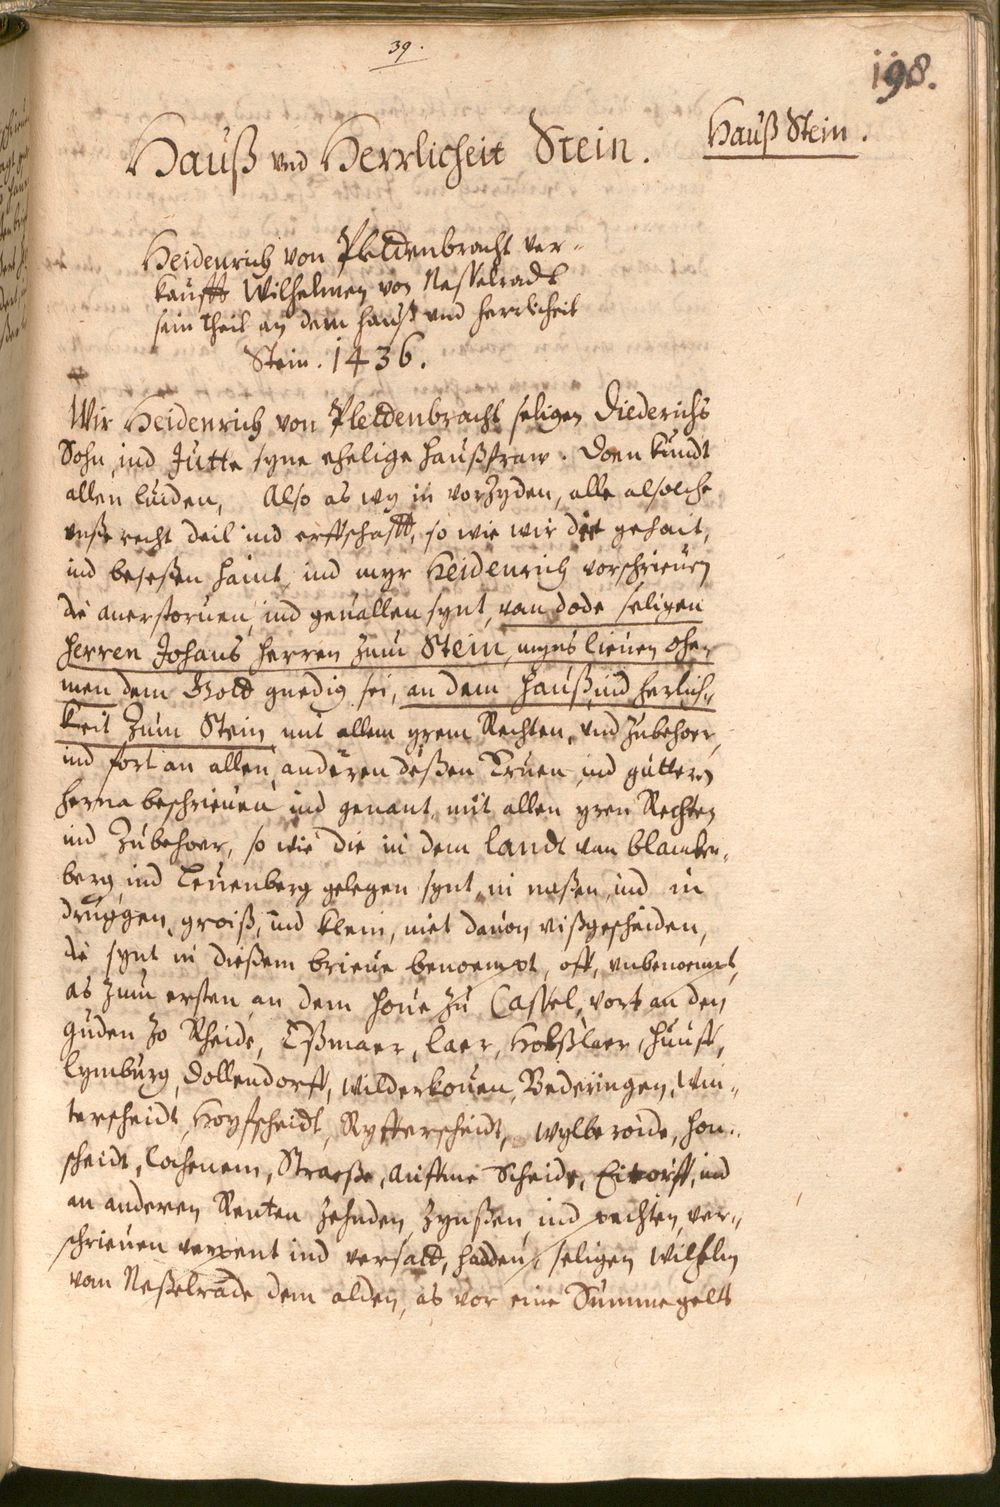 39.
198.
Hauß vnd Herrlicheit Stein.
Hauß Stein.
Heidenrich von Plettenbracht ver-
kaufft Wilhelmen von Nesselradt
sein Theil an dem Hauß vnd herrlicheit
Stein. 1436.
Wir Heidenrich von Plettenbracht seligen Diederichs
Sohn, ind Jutte syne ehelige haußfraw. Doen kundt
allen luiden, Also as wy in vorzyden, alle alsolche
vnße recht deil ind erffschafft, so wie wir die gehait,
ind beseßen haint, ind myr Heidenrich vorschrieuen
die anerstoruen, ind geuallen synt, van dode seligen
Herren Johans Herren zum Stein, myns lieuen Ohe-
men dem Gott gnedig sei, an dem Hauß, ind herlich-
keit zum Stein mit allem yrem Rechten, vnd zubehoer,
ind fort an allen anderen deßen Eruen ind gutteren
herna beschrieuen ind genant, mit allen yren Rechten
ind zubehoer, so wie die in dem landt van blanken-
berg, ind Leuenberg gelegen synt, in naßen, ind in
druggen, groiß, ind klein, niet dauon vißgescheiden,
die synt in dießem brieue benoempt, off, vnbenoempt,
as zum ersten, an dem houe zu Cassel, vort an den
guden zo Rheide, Eßmaer, laer, Hohßlaer, Huuff,
lymburg, Dollendorff, Wilderkouen, Bederingen, Win-
terscheidt, Hoyfscheidt, Ryfferscheidt, Wylberoide, Hon-
scheidt, Lochenem, Straeße, Scheide, Eitorff, ind
an anderen Renten zehnden, zynßen, ind pechten, ver-
schrieuen verpent ind versatt, hadden, seligen Wilhelm
van Neßelrade dem alden, as vor eine Summe gelts